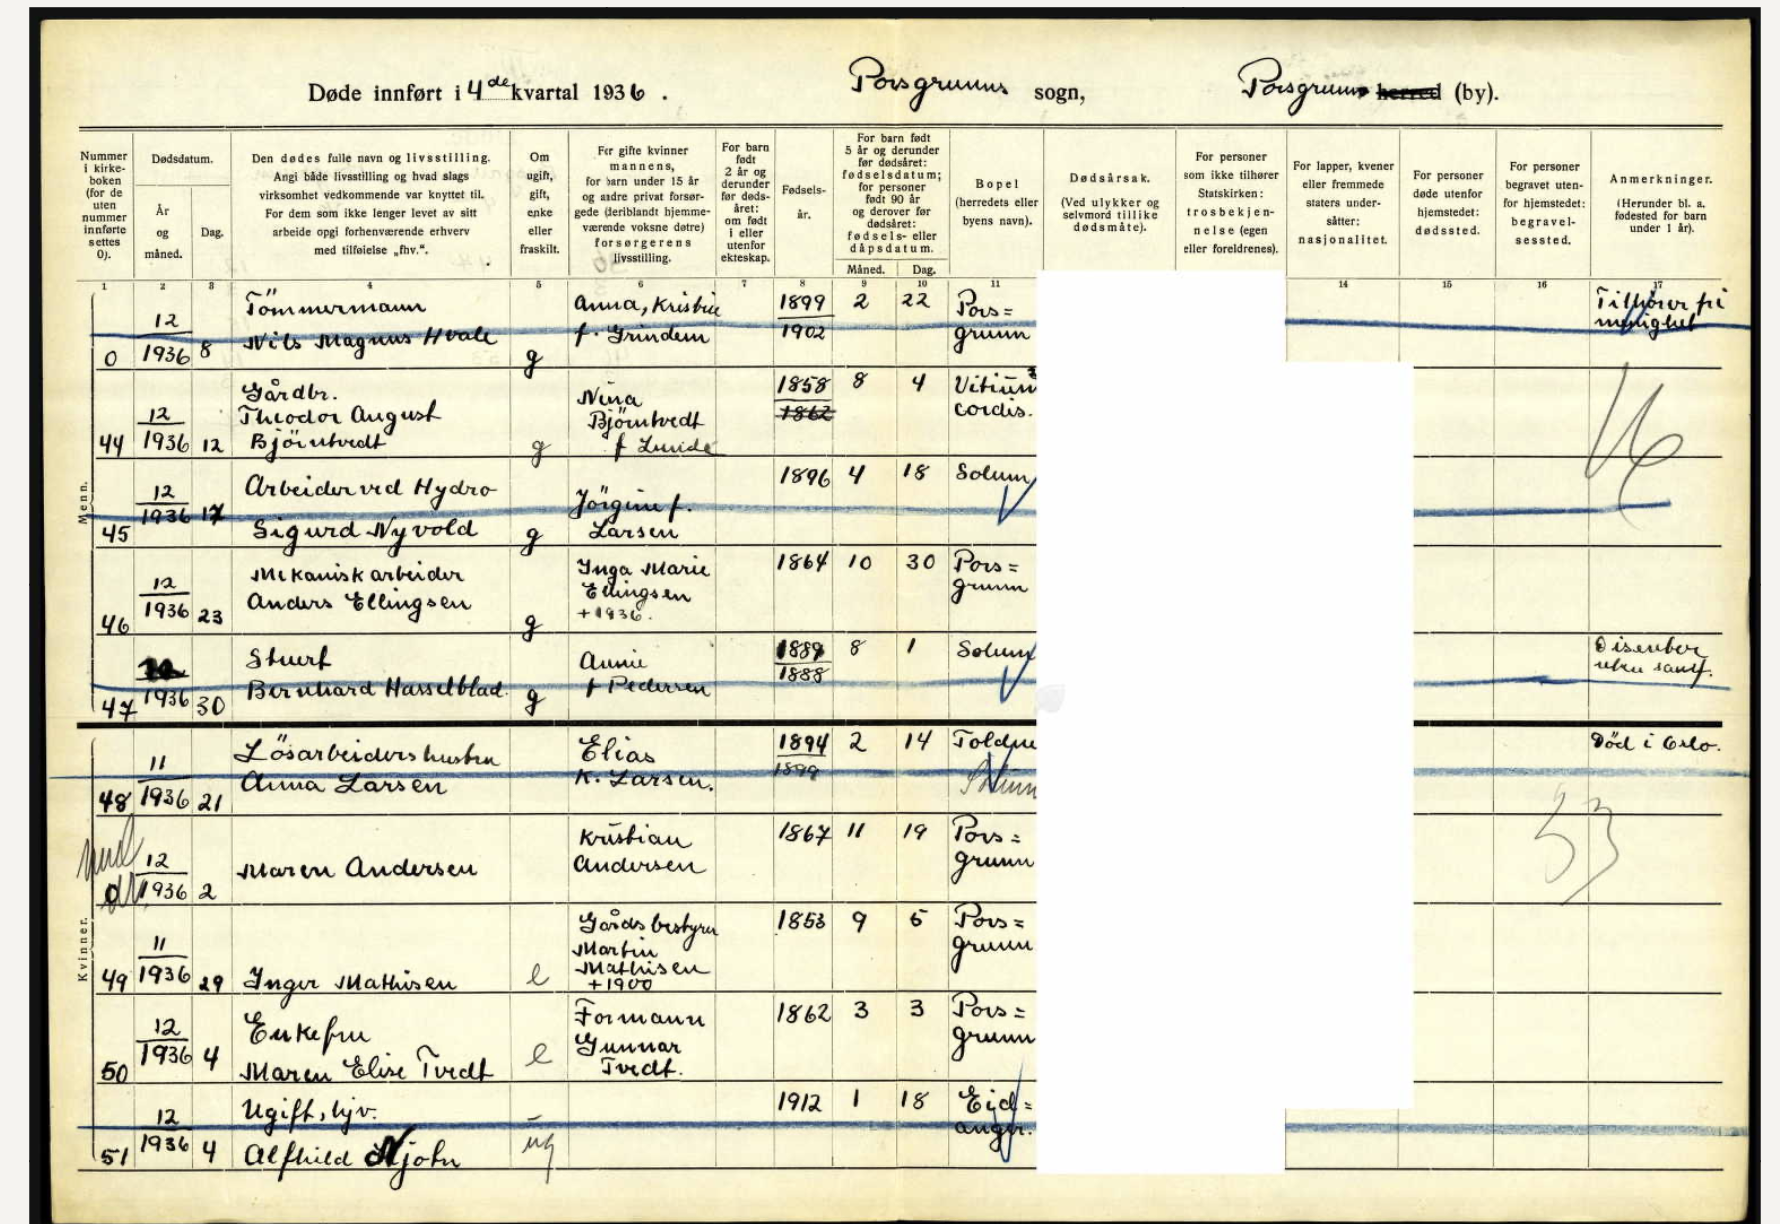 Døde innført i 4de kvartal 1936. Porsgrunns sogn, Porsgrunn herred (by).
Nummer i kirke-boken (for de uten nummer innførte settes 0).
Dødsdatum.
År og måned.
Dag.
Den dødes fulle navn og livsstilling.
Angi både livsstilling og hvad slags
virksomhet vedkommende var knyttet til.
For dem som ikke lenger levet av sitt
arbeide opgi forhenværende erhverv
med tilføielse „fhv.“.
Om
ugift,
gift,
enke
eller
fraskilt.
For gifte kvinner
mannens,
for barn under 15 år
og andre privat forsør-
gede (deriblandt hjemme-
værende voksne døtre)
forsørgerens
livsstilling.
For barn
født
2 år og
derunder
før døds-
året:
om født
i eller
utenfor
ekteskap.
Fødsels-
år.
For barn født
5 år og derunder
før dødsåret:
fødselsdatum;
for personer
født 90 år
og derover før
dødsåret:
fødsels- eller
dåpsdatum.
Måned. Dag.
Bopel
(herredets eller
byens navn).
Dødsårsak.
(Ved ulykker og
selvmord tillike
dødsmåte).
For personer
som ikke tilhører
Statskirken:
trosbekjen-
nelse (egen
eller foreldrenes).
For lapper, kvener
eller fremmede
staters under-
såtter:
nasjonalitet.
For personer
døde utenfor
hjemstedet:
dødssted.
For personer
begravet uten-
for hjemstedet:
begravel-
sessted.
Anmerkninger.
(Herunder bl. a.
fødested for barn
under 1 år).
1 2 3 4 5 6 7 8 9 10 11 14 15 16 17
Menn.
Tömmermann Anna, Kristine 1899 2 22 Pors= Tilhører fri
0 12/1936 8 Nils Magnus Hvale g f. Grindem 1902 grunn menighet
Gårdbr. Nina 1858 8 4 Vitium
Theodor August Björntvedt 1862 cordis.
44 12/1936 12 Björntvedt g f Lunde
Arbeider ved Hydro Jörgine f. 1896 4 18 Solum
45 12/1936 17 Sigurd Nyvold g Larsen
Mekanisk arbeider Inga Marie 1864 10 30 Pors=
Anders Ellingsen Ellingsen grunn
46 12/1936 23 g +1936.
Stuert Annie 1889 8 1 Solum Disenber
47 1936 30 Bernhard Hasselblad. g f Pedersen 1888
Kvinner.
Lösarbeiders hustru Elias 1894 2 14 Död i Oslo.
48 11/1936 21 Anna Larsen K. Larsen. 1899
Kristian 1867 11 19 Pors= 53
0 12/1936 2 Maren Andersen Andersen grunn
Gårdsbestyrer 1853 9 5 Pors=
Martin grunn
Mathisen
49 11/1936 29 Inger Mathisen e +1900
Enkefru Formann 1862 3 3 Pors=
Gunnar grunn
50 12/1936 4 Maren Elise Tvedt e Tvedt.
Ugift, hjv. 1912 1 18 Eid=
anger.
51 12/1936 4 Alfhild Njohn ug